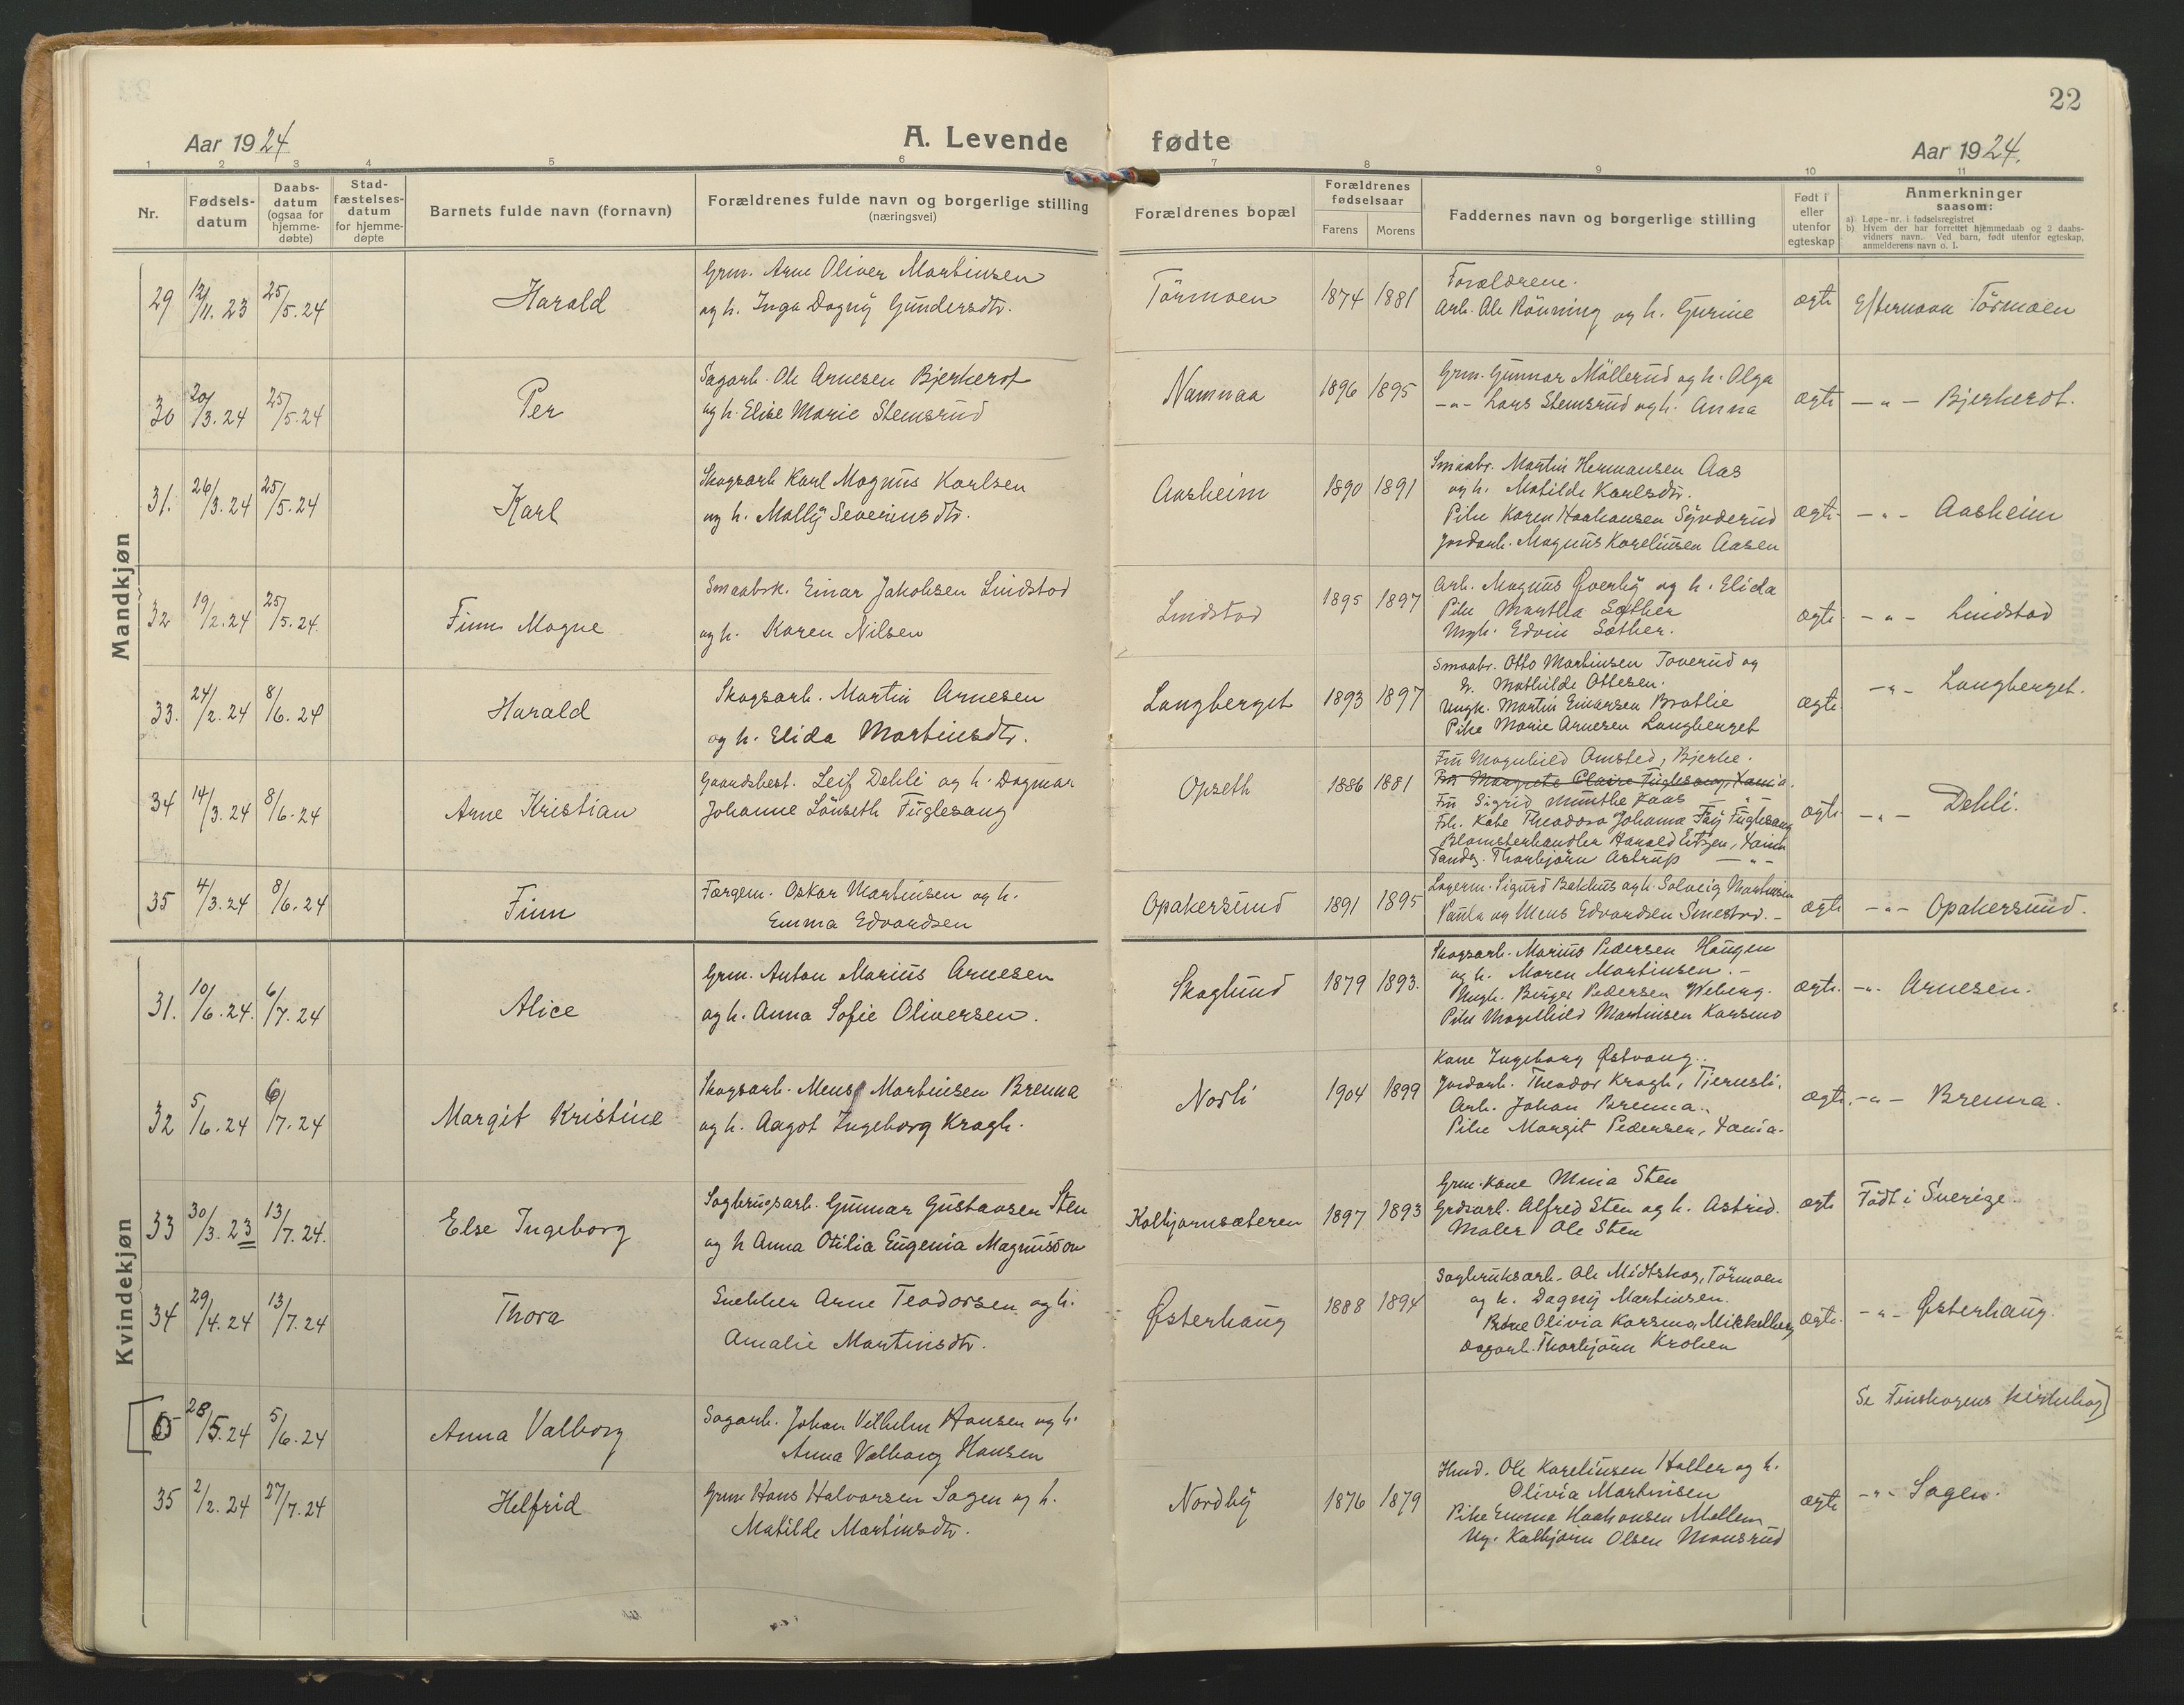 22
Aar 1924
A. Levende fødte
Aar 1924.
1 2 3 4 5 6 7 8 9 10 11
Nr.
Fødsels-
datum
Daabs-
datum
(ogsaa for
hjemme-
døbte)
Stad-
fæstelses-
datum
for hjemme-
døpte
Barnets fulde navn (fornavn)
Forældrenes fulde navn og borgerlige stilling
(næringsvei)
Forældrenes bopæl
Forældrenes
fødselsaar
Farens Morens
Faddernes navn og borgerlige stilling
Født i
eller
utenfor
egteskap
Anmerkninger
saasom:
a) Løpe-nr. i fødselsregistret
b) Hvem der har forrettet hjemmedaab og 2 daabs-
vidners navn. Ved barn, født utenfor egteskap,
anmelderens navn o. l.
Mandkjøn
29 12/11. 23 25/5. 24 Harald
Grm. Arne Oliver Martinsen
og h. Inga Dagny Gundersdtr.
Törmoen 1874 1881
Forældrene.
Arb. Ole Rönning og h. Gurine
ægte Efternavn Törmoen
30 20/3. 24 25/5. 24 Per
Sagarb. Ole Arnesen Bjerkerot
og h. Elise Marie Stemsrud
Namnaa 1896 1895
Grm. Gunnar Möllerud og h. Olga
-"- Lars Stemsrud og h. Anna
ægte -"- Bjerkerot.
31. 26/3. 24 25/5. 24 Karl
Skogsarb Karl Magnus Karlsen
og h. Molly Severinsdtr.
Aasheim 1890 1891
Smaabr. Martin Hermansen Aas
og h. Matilde Karlsdtr.
Pike Karen Haakonsen Synderud
Jordarb. Magnus Karelinsen Aasen
ægte -"- Aasheim
32 19/2. 24 25/5. 24. Finn Magne
Smaabrk. Einar Jakobsen Lindstad
og h. Karen Nilsen
Lindstad 1895 1897
Arb. Magnus Överby og h. Elida
Pike Martha Sæther
Ungk. Edvin Sæther.
ægte -"- Lindstad
33. 24/2. 24 8/6. 24 Harald
Skogsarb. Martin Arnesen
og h. Elida Martinsdtr.
Langberget 1893 1897
Smaabr. Otto Martinsen Toverud og
h. Mathilde Ottesen.
Ungk. Martin Einarsen Bratlie
Pike Marie Arnesen Langberget
ægte -"- Langberget.
34 14/3. 24 8/6. 24 Arne Kristian
Gaardsbest. Leif Dehli og h. Dagmar
Johanne Lönseth Fuglesang
Opseth 1886 1881
Fru Magnhild Amsted, Bjerke.
Fru Margrete Claire Fuglesang,
Fru Sigrid Munthe Kaas -"-
Frk. Kabe Theodora Johanna Fay Fuglesang
Blomsterhandler Harald Eitzen,
Tandlæ. Thorbjörn Astrup -"-
ægte -"- Dehli.
35 4/3. 24 8/6. 24 Finn
Færgem. Oskar Martinsen og h.
Emma Edvardsen
Opakersund 1891 1895
Lagerm. Sigurd Bekhus og h. Solveig Martinsen
Paula og Mens Edvardsen Smestad.
ægte -"- Opakersund.
Kvindekjøn
31. 10/6. 24. 6/7. 24 Alice
Grm. Anton Marius Arnesen
og h. Anna Sofie Oliversen.
Skoglund 1879 1893.
Skogsarb. Marius Pedersen Haugen
og h. Maren Martinsen. -
Ungk. Birger Pedersen Weberg.
Pike Magnhild Martinsen Karsmo
ægte. -"- Arnesen.
32 5/6. 24 6/7. 24 Margit Kristine
Skogsarb. Mens Martinsen Brenna
og h. Aagot Ingeborg Kragh.
Norli 1904 1899
Kone Ingeborg Østvang.
Jordarb. Theodor Kragh, Tjernsli.
Arb. Johan Brenna.
Pike Margit Pedersen,
ægte. -"- Brenna.
33 30/3. 23 13/7. 24. Else Ingeborg
Sagbrugsarb. Gunnar Gustavsen Sten
og h Anna Otilia Eugenia Magnusson
Kolbjørnsæteren 1897 1893
Grm. kone Mina Sten
Grdsarb. Alfred Sten og h. Astrid.
Maler Ole Sten
ægte Födt i Sverige.
34 29/4. 24 13/7. 24 Thora
Snekker Arne Teodorsen og h.
Amalie Martinsdtr.
Østerhaug 1888 1894
Sagbruksarb. Ole Midtskog, Törmoen
og h. Dagny Martinsen.
Olivia Karsmo, Mikkelberg
Dagarb. Thorbjörn Kroken
ægte. -"- Østerhaug.
28/5. 24 5/6. 24 Anna Valborg
Sagarb. Johan Vilhelm Hansen og h.
Anna Valborg Hansen
Se Finskogens kirkebog]
35 2/2. 24 27/7. 24 Helfrid
Grm Hans Halvorsen Sagen og h.
Matilde Martinsdtr.
Nordby 1876 1879
Hmd. Ole Karelinsen Haller og h.
Olivia Martinsen
Pike Emma Haakonsen Mellem
Ug. Kolbjörn Olsen Monsrud
ægte -"- Sagen.